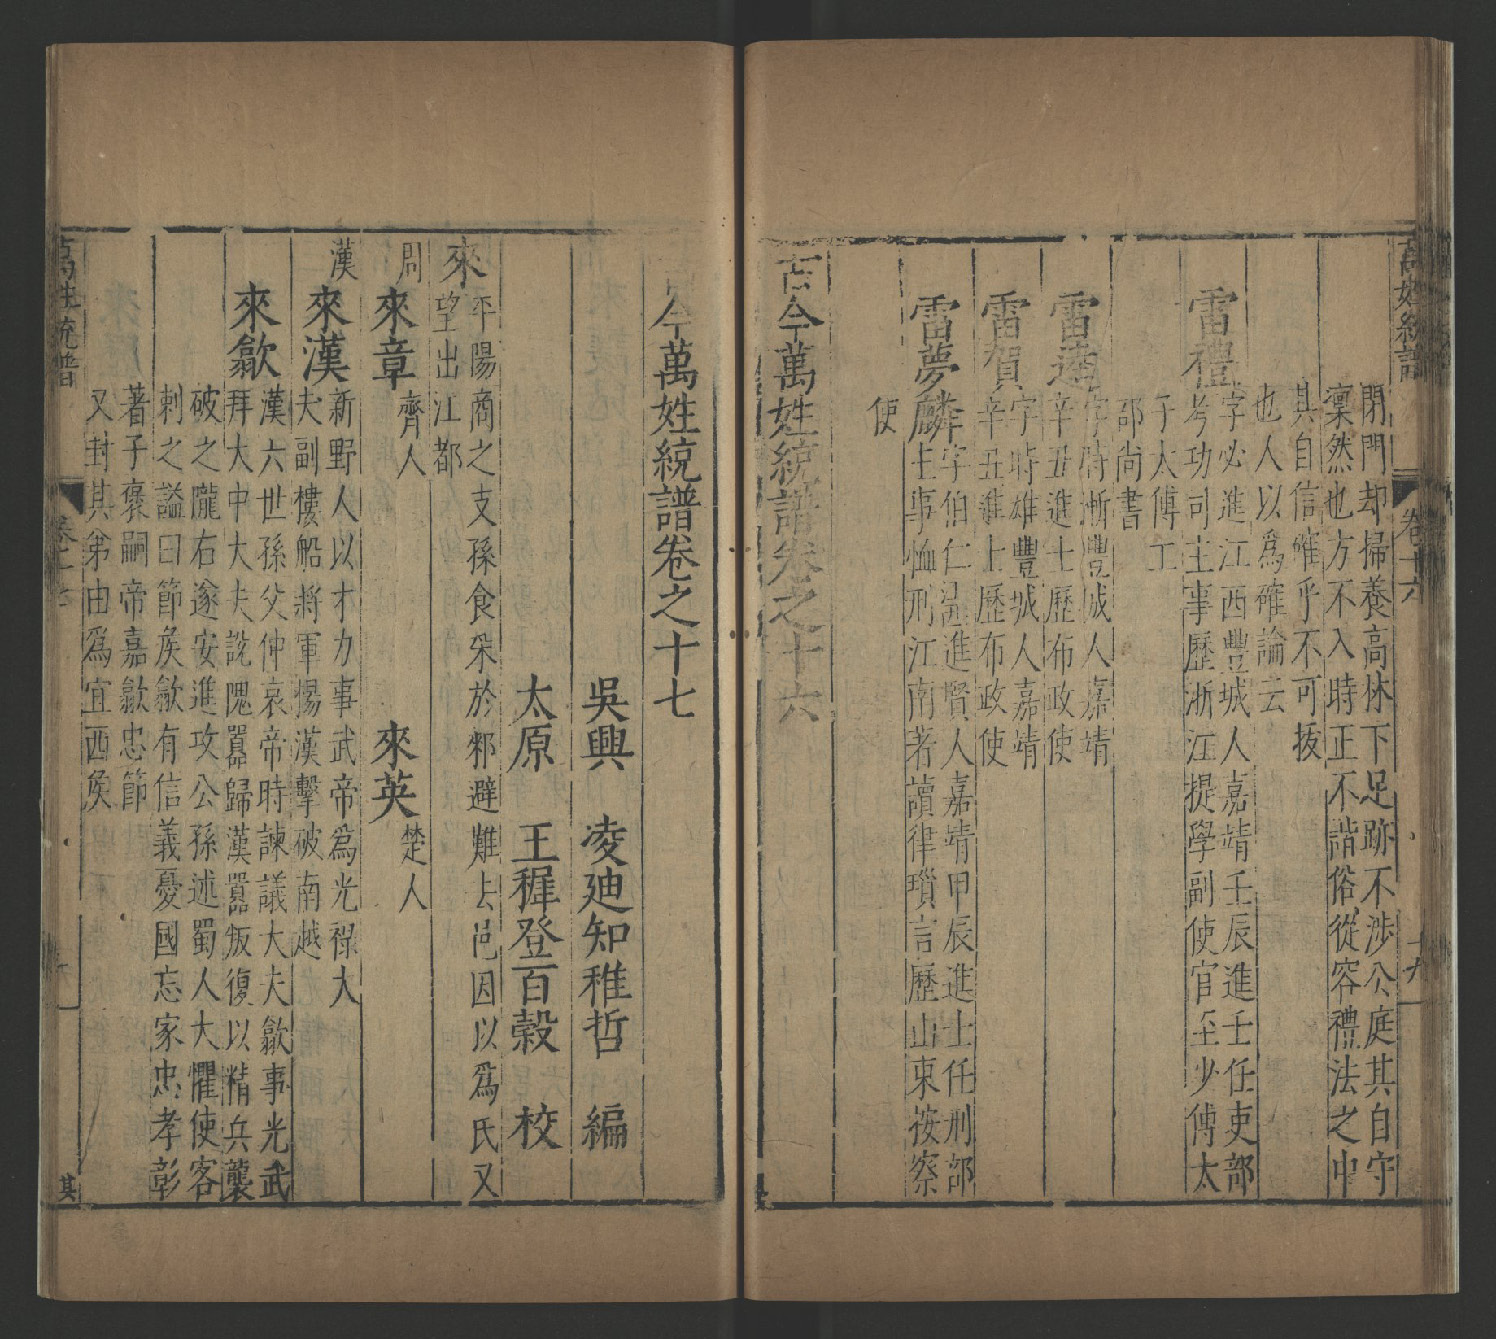 萬姓統譜
卷十六
十九
閉門却掃養高休下足跡不涉公庭其自守
凜然也方不入時正不諧俗從容禮法之中
其自信確乎不可拔
也人以爲確論云
雷禮
字必進江西豐城人嘉靖壬辰進士任吏部
考功司主事歷浙江提學副使官至少傅太
子太傅工
部尚書
雷逵
字時漸豐城人嘉靖
辛丑進士歷布政使
雷賀
字時雄豐城人嘉靖
辛丑進士歷布政使
雷夢麟
字伯仁進賢人嘉靖甲辰進士任刑部
主事恤刑江南著讀律瑣言歷山東按察
使
古今萬姓統譜卷之十六
古今萬姓統譜卷之十七
吳興 凌廸知稚哲 編
太原 王穉登百榖 校
來
平陽商之支孫食采於郲避難去邑因以爲氏又
望出江都
周
來章 齊人
來英 楚人
漢
來漢
新野人以才力事武帝爲光祿大
夫副樓船將軍楊漢擊破南越
來歙
漢六世孫父仲哀帝時諫議大夫歙事光武
拜大中大夫說隗囂歸漢囂叛復以精兵襲
破之隴右遂安進攻公孫述蜀人大懼使客
刺之謚曰節侯歙有信義憂國忘家忠孝彰
著子褒嗣帝嘉歙忠節
又封其弟由爲宜西侯
萬姓統譜
卷十七
一
其